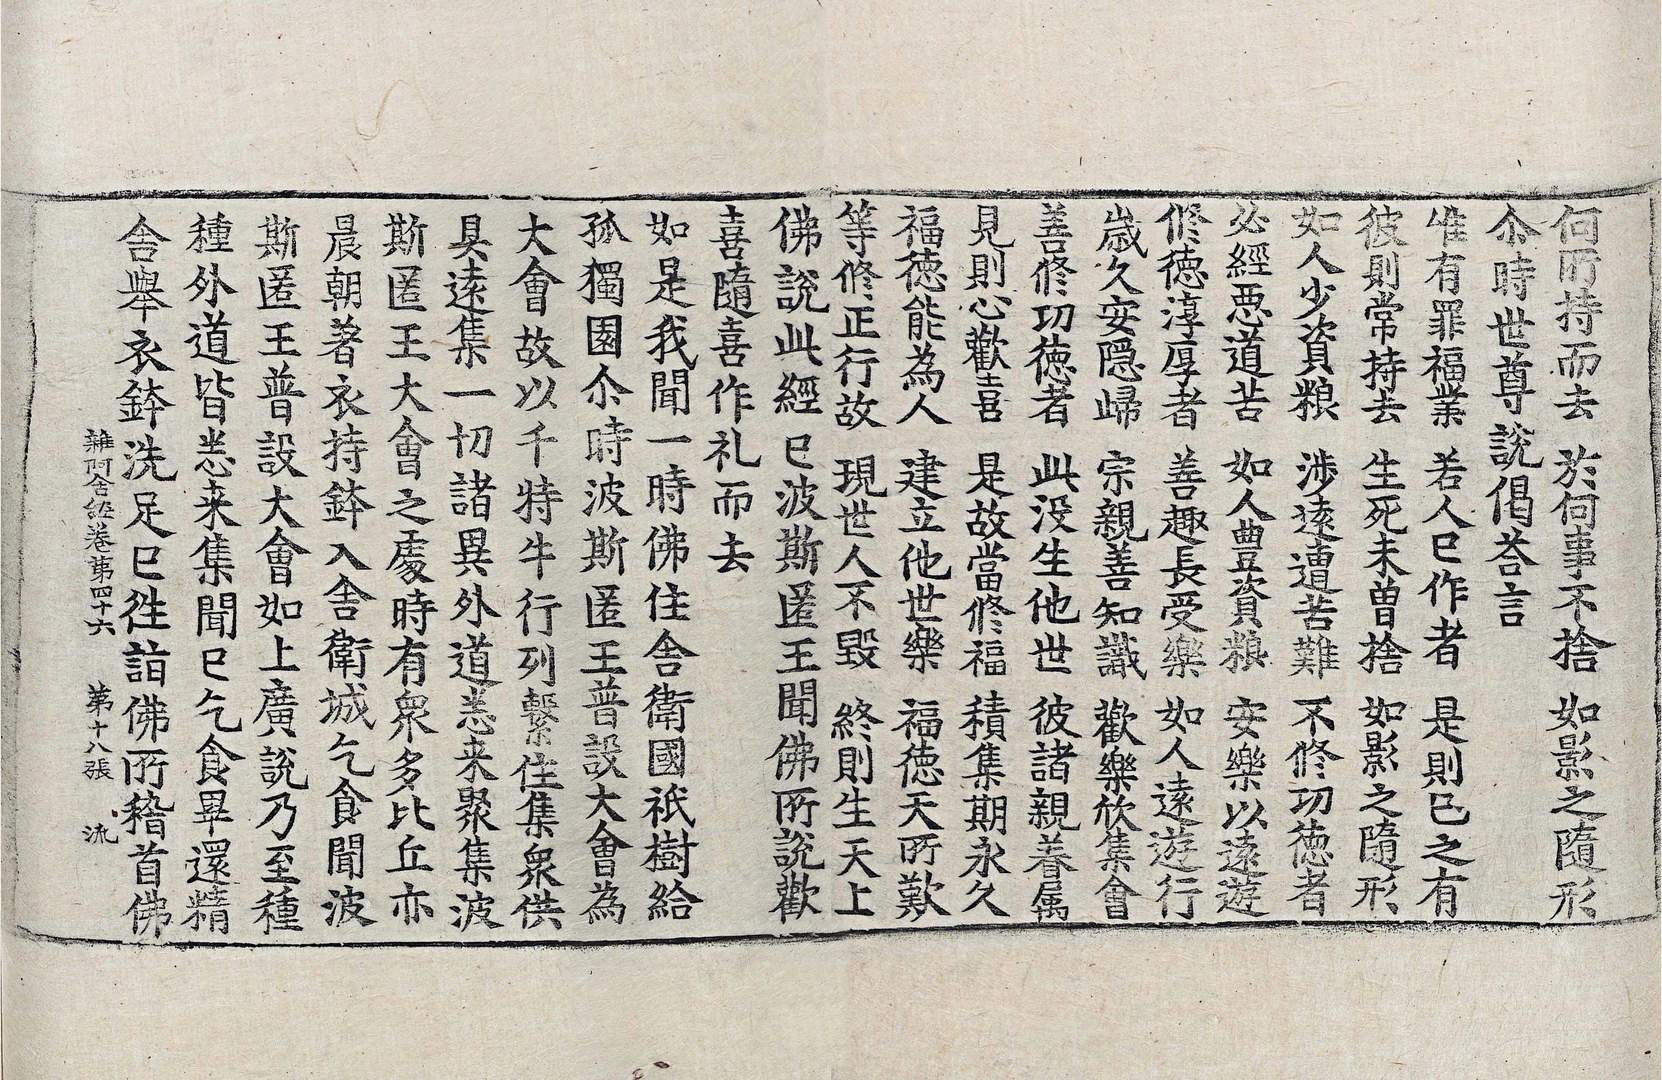 何所持而去　於何事不捨　如影之隨形
尒時世尊說偈荅言
唯有罪福業　若人已作者　是則已之有
彼則常持去　生死未曾捨　如影之隨形
如人少資粮　渉遠遭苦難　不修功徳者
必經惡道苦　如人豊資粮　安樂以遠遊
修徳淳厚者　善趣長受樂　如人遠遊行
歲久安隱歸　宗親善知識　歡樂欣集會
善修功徳者　此没生他世　彼諸親眷属
見則心歡喜　是故當修福　積集期永久
福徳能為人　建立他世樂　福徳天所歎
等修正行故　現世人不毀　終則生天上
佛說此經已波斯匿王聞佛所說歡
喜隨喜作礼而去
如是我聞一時佛住舎衛國祇樹給
孤獨園尒時波斯匿王普設大會為
大會故以千特牛行列繫住集衆供
具遠集一切諸異外道悉来聚集波
斯匿王大會之處時有衆多比丘亦
晨朝著衣持鉢入舎衛城乞食聞波
斯匿王普設大會如上廣說乃至種
種外道皆悉来集聞已乞食畢還精
舎舉衣鉢洗足已徃詣佛所稽首佛
雜阿含經卷第四十六　第十八張　流